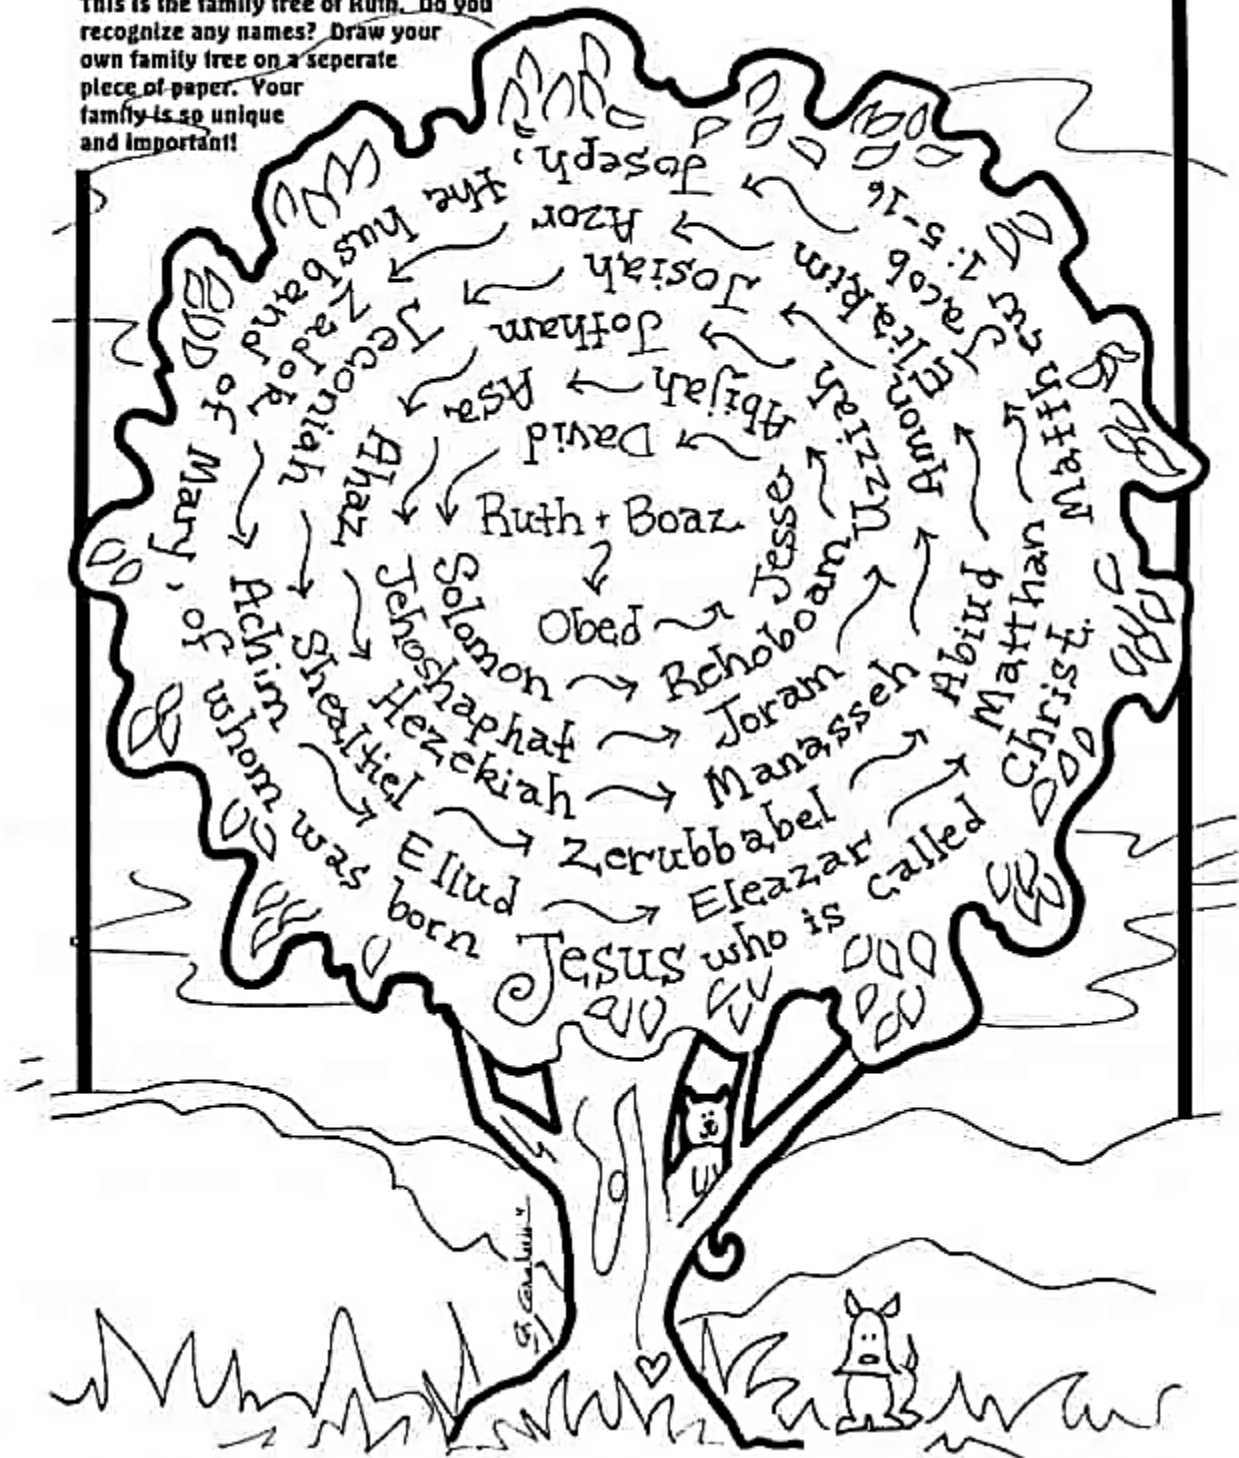 This is the family tree of Ruth. Do you
recognize any names? Draw your
own family tree on a seperate
piece of paper. Your
family is so unique
and important!
Ruth + Boaz
Obed
Jesse
David
Solomon
Rehoboam
Abijah
Asa
Jehoshaphat
Joram
Uzziah
Jotham
Ahaz
Hezekiah
Manasseh
Amon
Josiah
Jeconiah
Shealtiel
Zerubbabel
Abiud
Eliakim
Azor
Zadok
Achim
Eliud
Eleazar
Matthan
Jacob
Joseph,
the husband of Mary, of whom was born Jesus who is called Christ.
Matthew 1:5-16